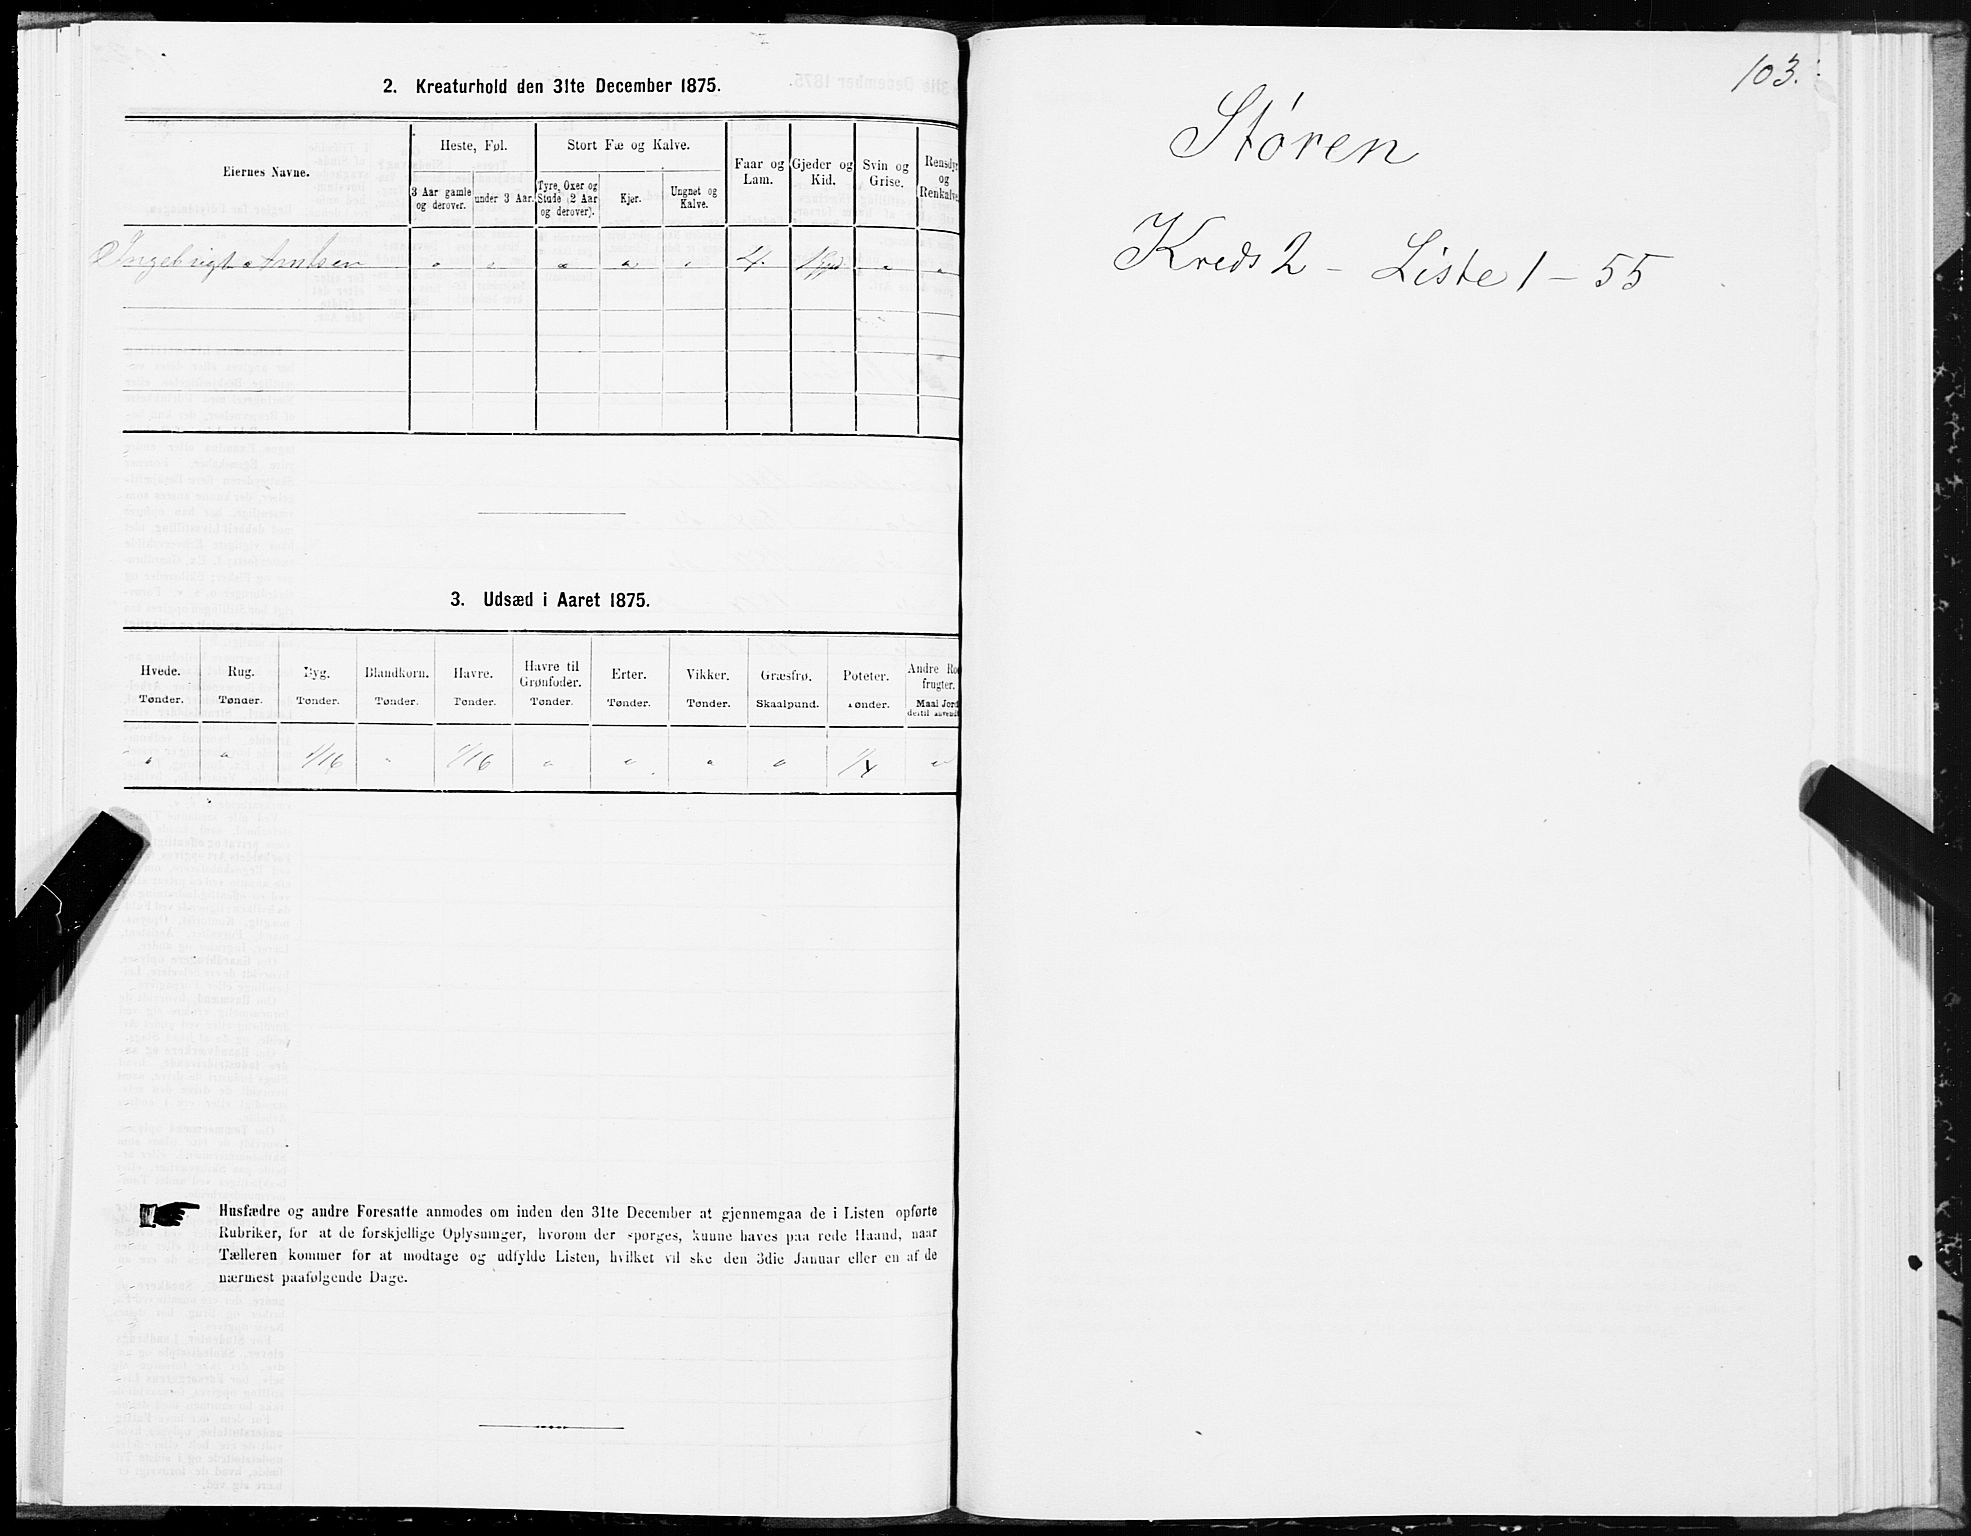 2. Kreaturhold den 31te December 1875.
Eiernes Navne.
Heste, Føl.
Stort Fæ og Kalve.
Faar og Lam.
Gjeder og Kid.
Svin og Grise.
Rensdyr og Renkalve.
3 Aar gamle og derover.
under 3 Aar.
Tyre, Oxer og Stude (2 Aar og derover).
Kjer.
Ungnøt og Kalve.
Ingebrigt Arntsen " " " " " 4. " "
3. Udsæd i Aaret 1875.
Hvede. Rug. Byg. Blandkorn. Havre. Havre til Grønfoder. Erter. Vikker. Græsfrø. Poteter. Andre Ro frugter.
Tønder. Tønder. Tønder. Tønder. Tønder. Tønder. Tønder. Tønder. Skaalpund. Tønder. Maal Jord dertil anvendt
" " 1/16 " 1/16 " " " " 1/4 "
Husfædre og andre Foresatte anmodes om inden den 31te December at gjennemgaa de i Listen opførte
Rubriker, for at de forskjellige Oplysninger, hvorom der spørges, kunne haves paa rede Haand, naar
Tælleren kommer for at modtage og udfylde Listen, hvilket vil ske den 3die Januar eller en af de
nærmest paafølgende Dage.
103.
Støren
Kreds 2 - Liste 1 - 55